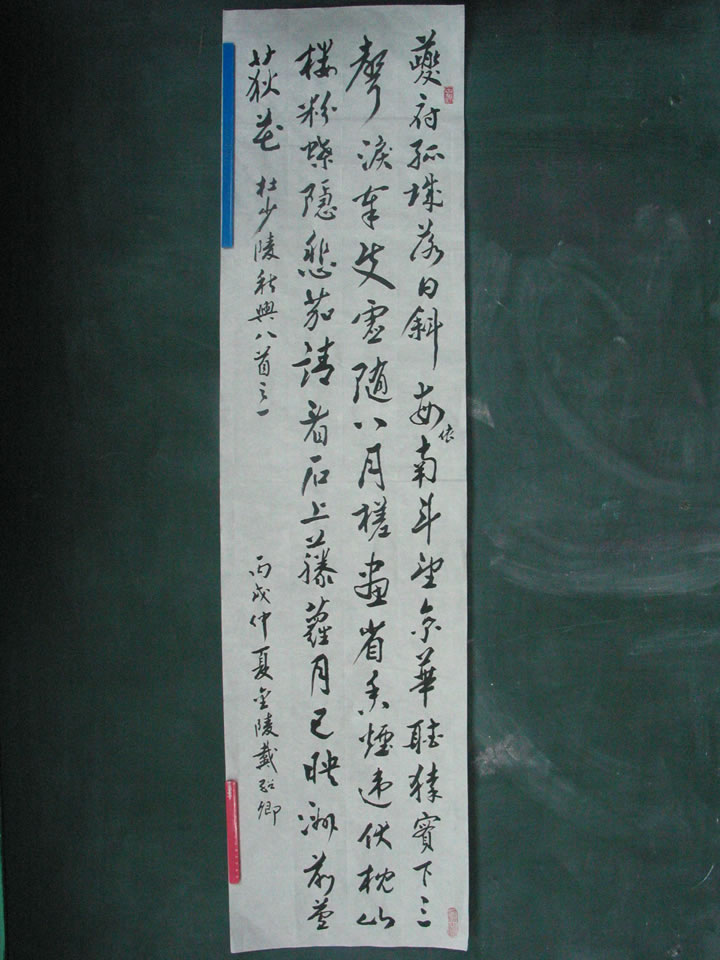 夔府孤城落日斜每依南斗望京華聽猿實下三
聲淚奉使虛隨八月槎畫省香煙違伏枕山
樓粉蝶隱悲茄請看石上藤蘿月已映洲前蘆
荻花 杜少陵秋興八首之一 丙戌仲夏金陵戴卿